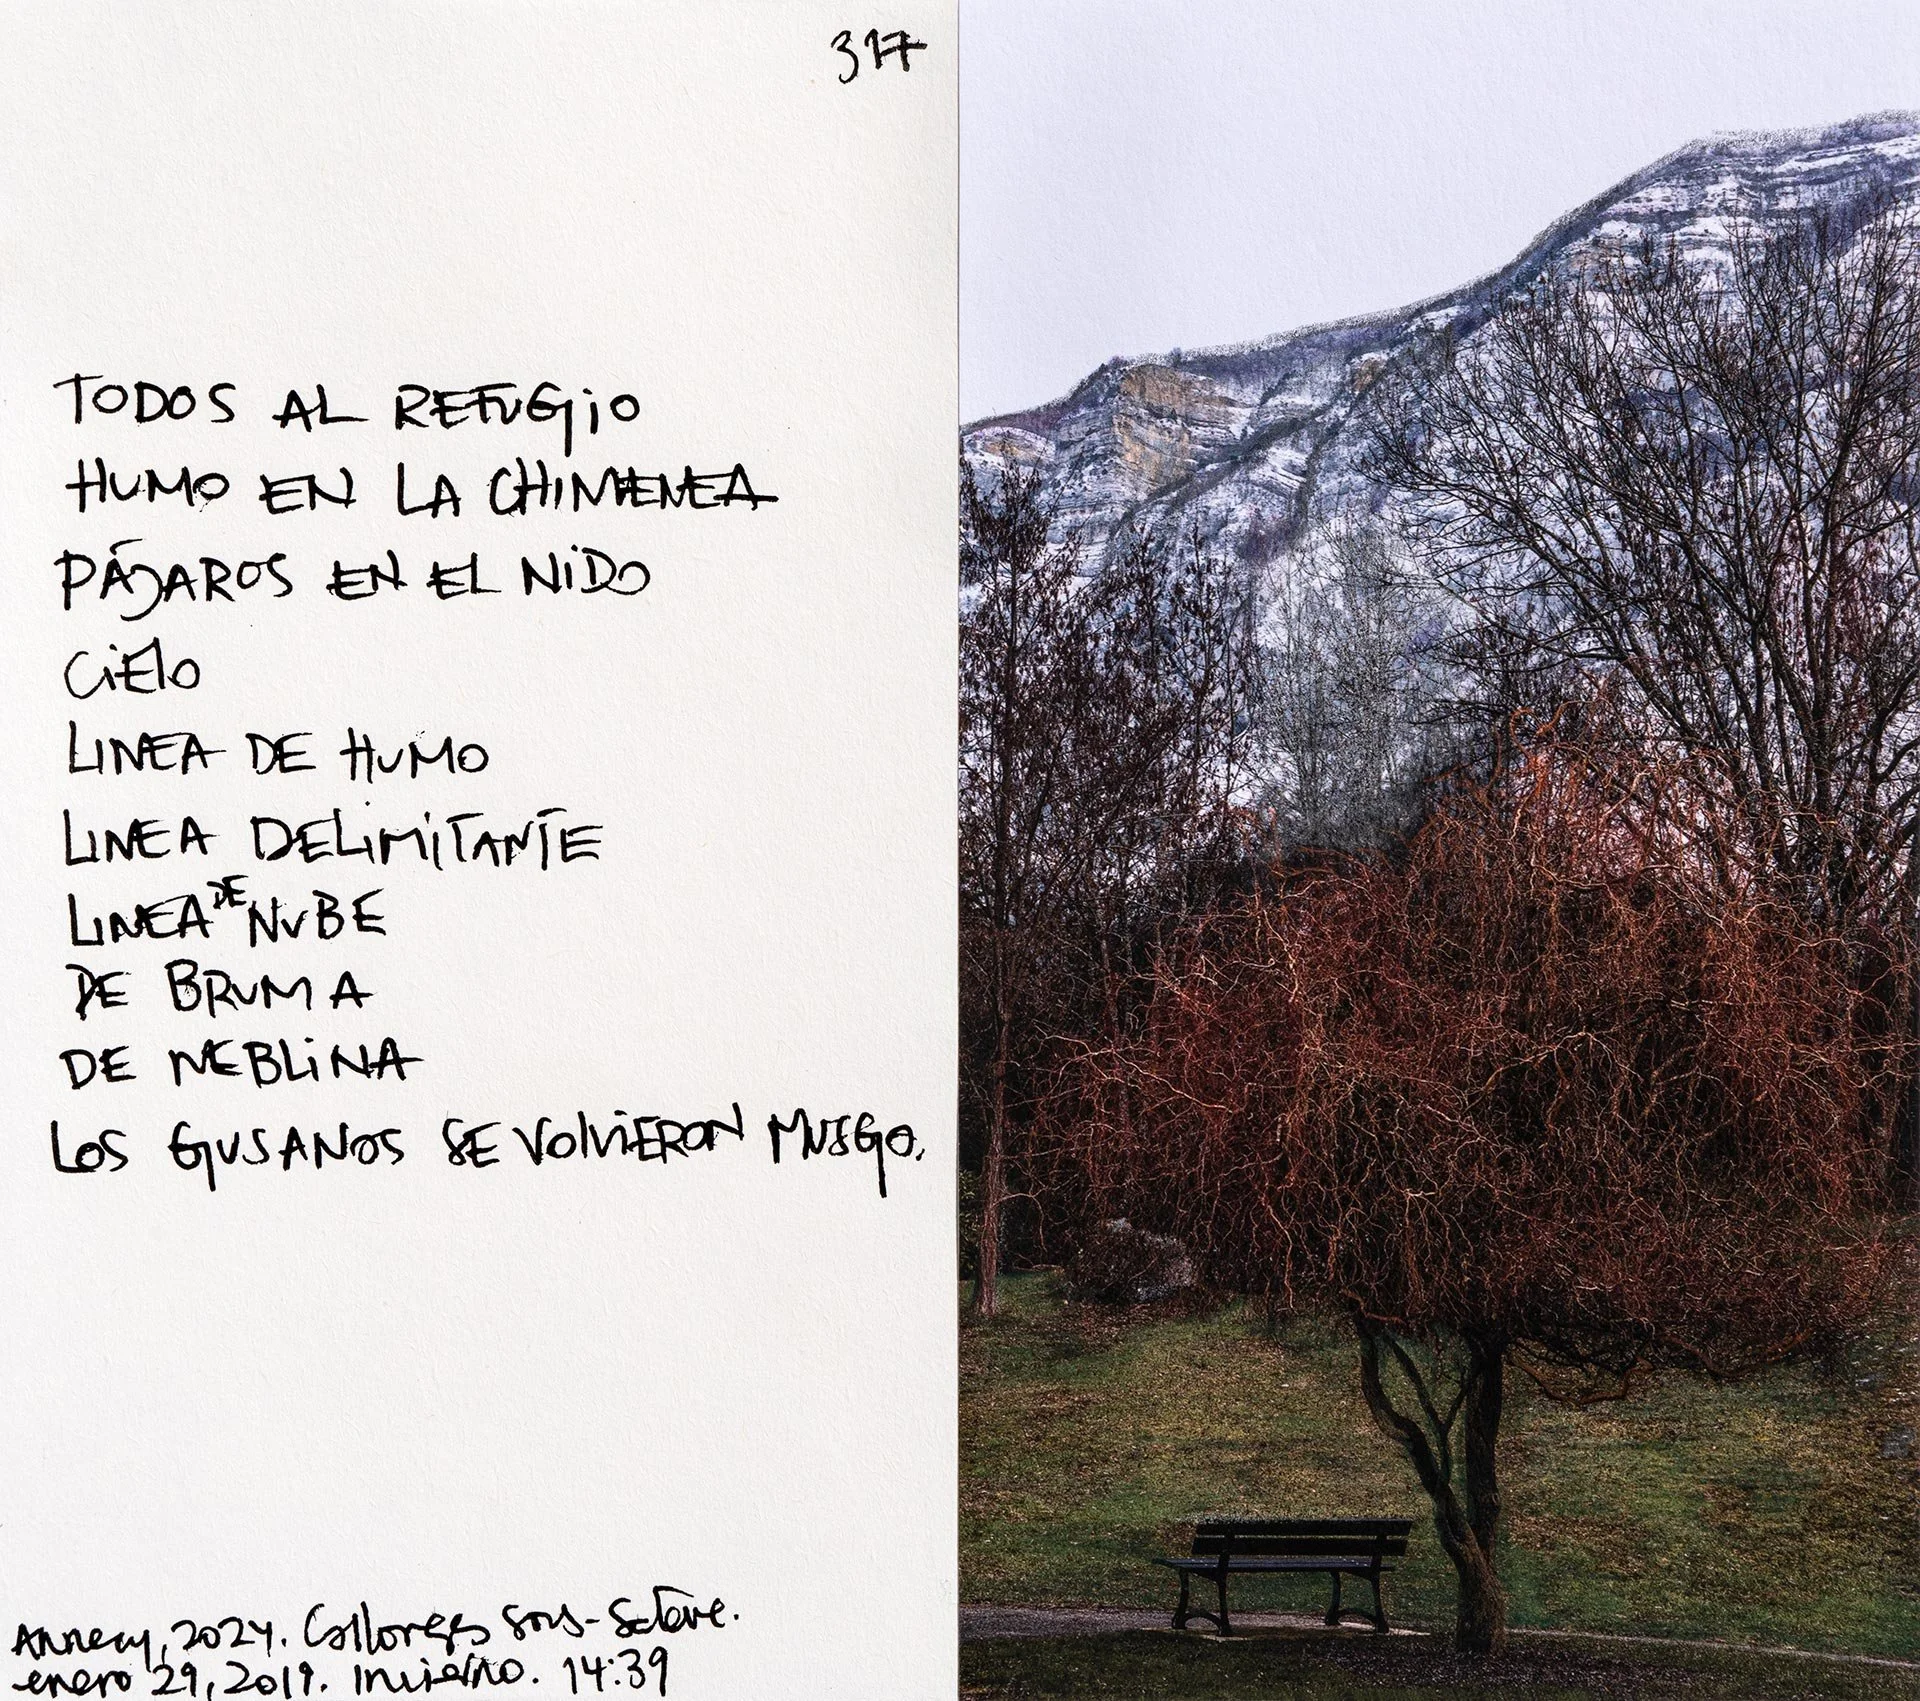 317
TODOS AL REFUGiO
HUMO EN LA CHIMENEA
PÁJAROS EN EL NiDO
CiElo
LINEA DE HUMO
LINEA DELiMiTANTE
LINEA DE NUBE
DE BRUMA
DE NEBLiNA
LOS GUSANOS SE VOlViERON MUSGO.
Annecy, 2024. Collonges sous-Salève.
enero 29, 2019. Invierno. 14:39